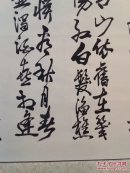 山依舊在幾
陽紅白髮漁樵
慣看秋月春
濁酒喜相逢